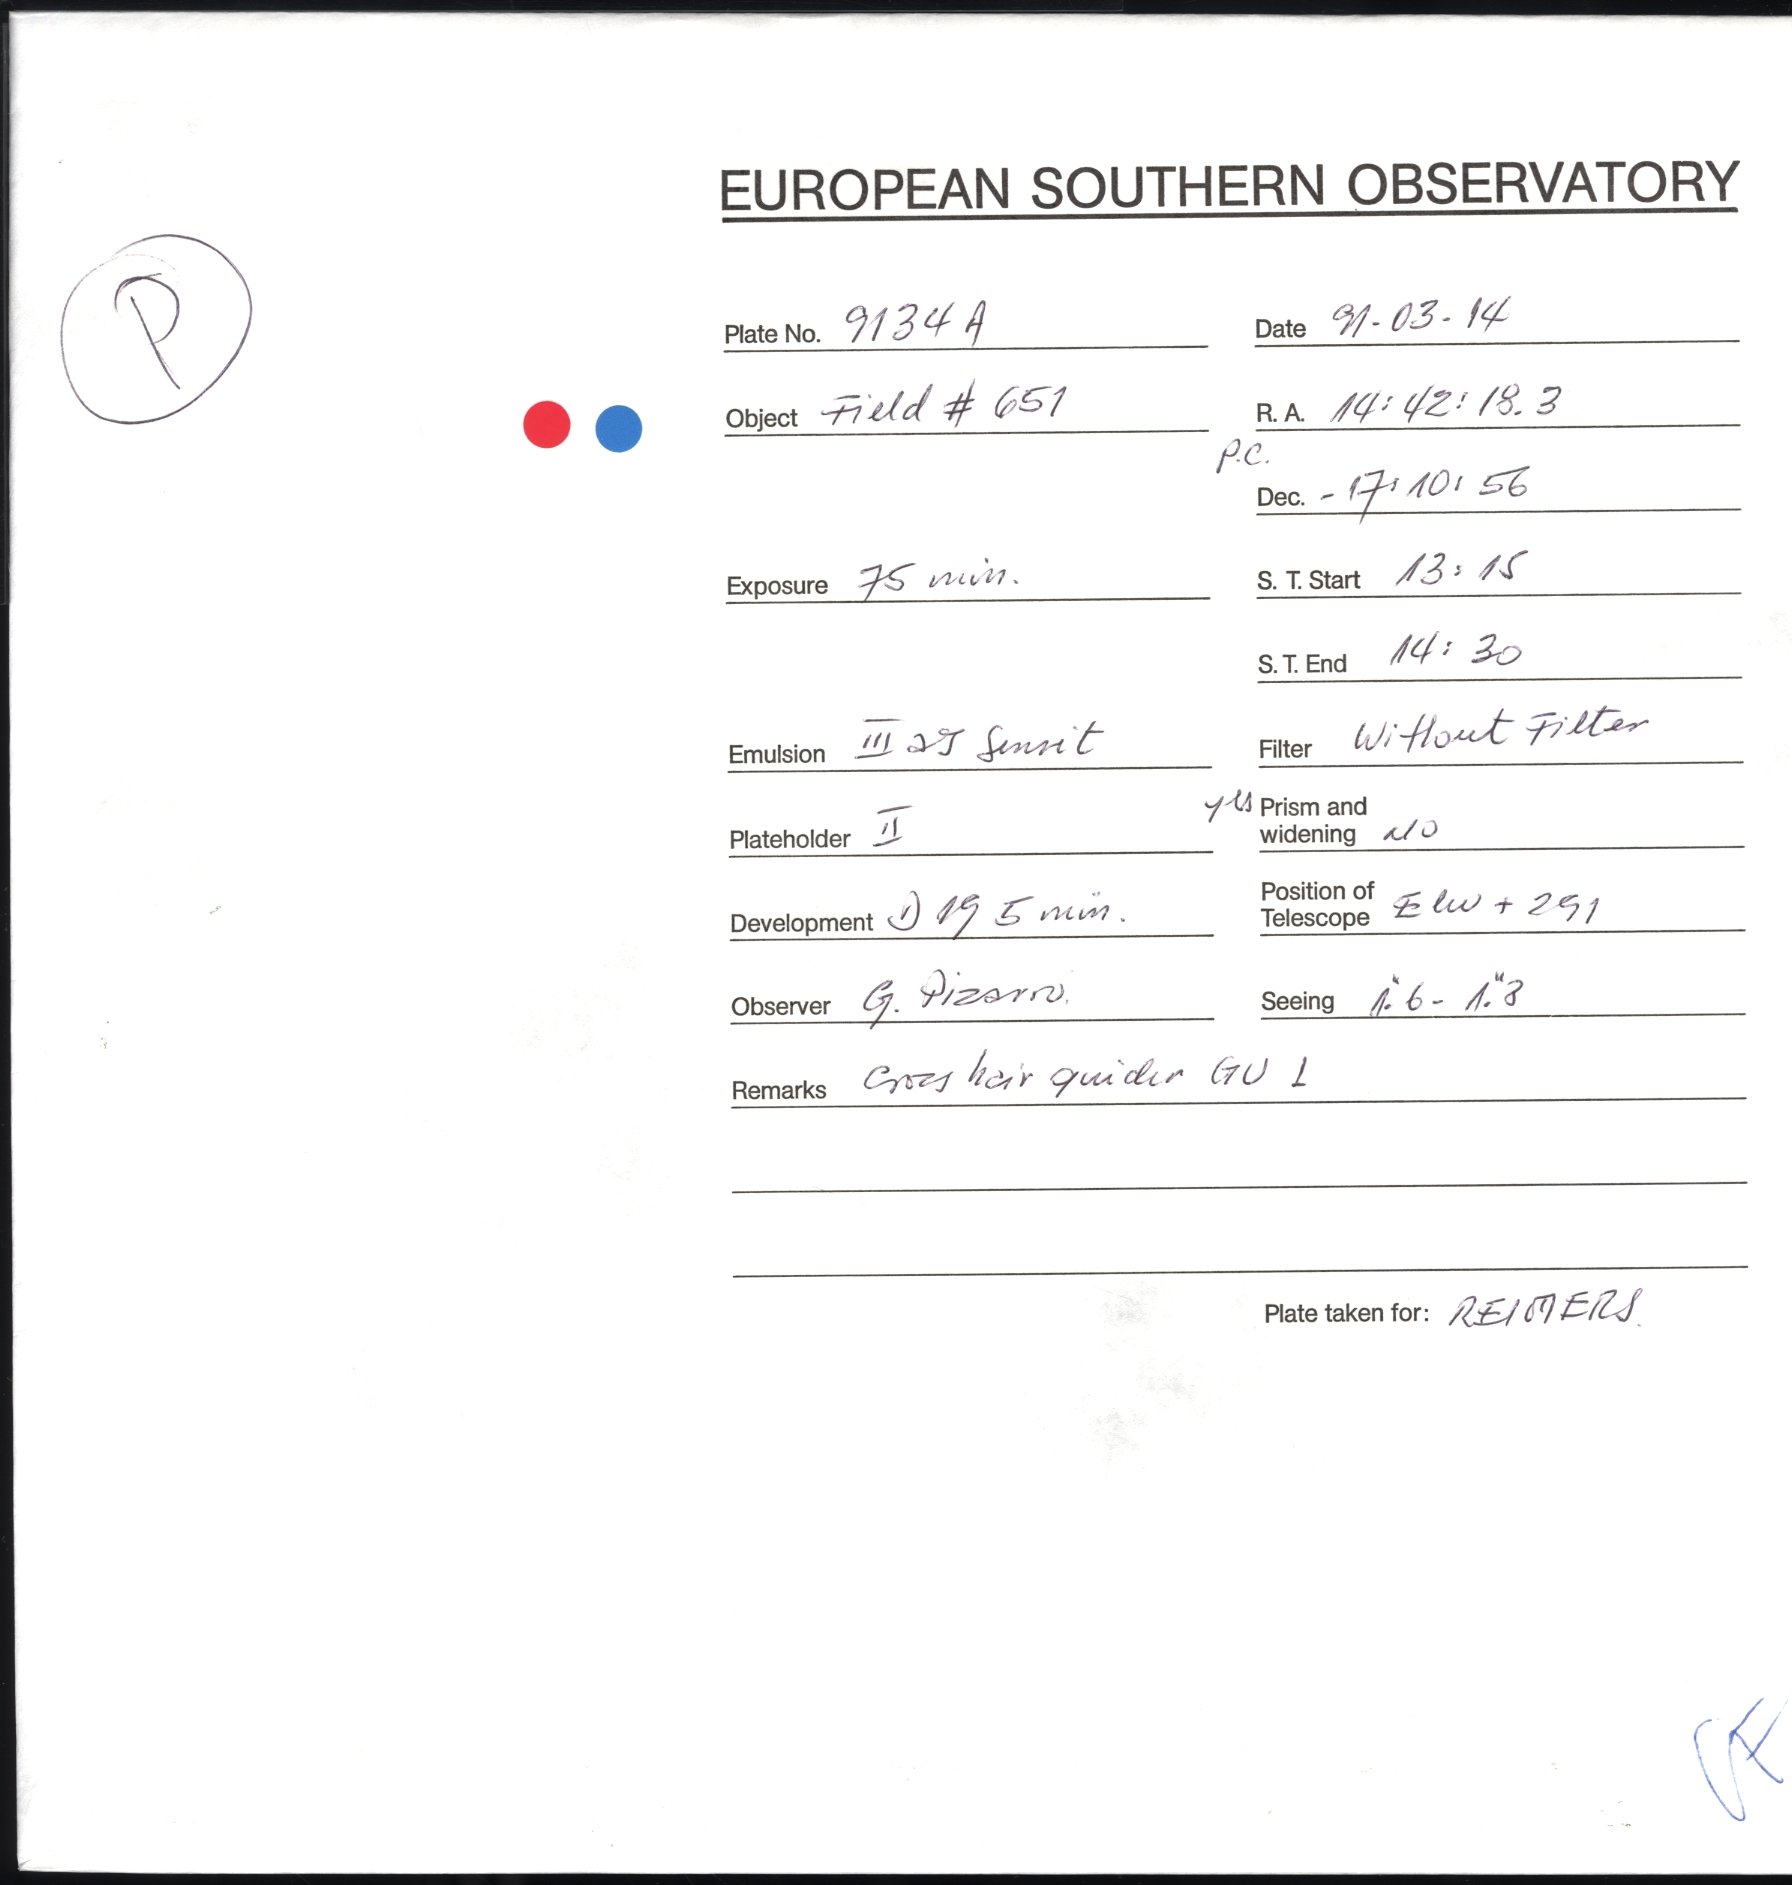 EUROPEAN SOUTHERN OBSERVATORY
P
Plate No. 9134 A
Date 91-03-14
Object Field # 651
R. A. 14:42:18.3
P.C.
Dec. -17:10:56
Exposure 75 min.
S. T. Start 13:15
S. T. End 14:30
Emulsion III aJ Sensit
Filter Without Filter
Plateholder II
yes Prism and
widening NO
Development 19 5 min.
Position of
Telescope + 291
Observer G. Pizarro.
Seeing 1."6 - 1."8
Remarks Cross hair guider GU 1
Plate taken for: REIMERS.